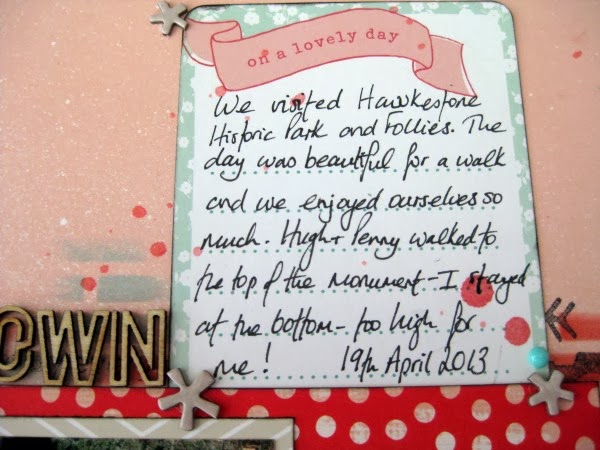 on a lovely day
We visited Hawkestone
Historic Park and Follies. The
day was beautiful for a walk
and we enjoyed ourselves so
much. Hugh + Penny walked to
the top of the monument - I stayed
at the bottom - too high for
me! 19th April 2013
OWN